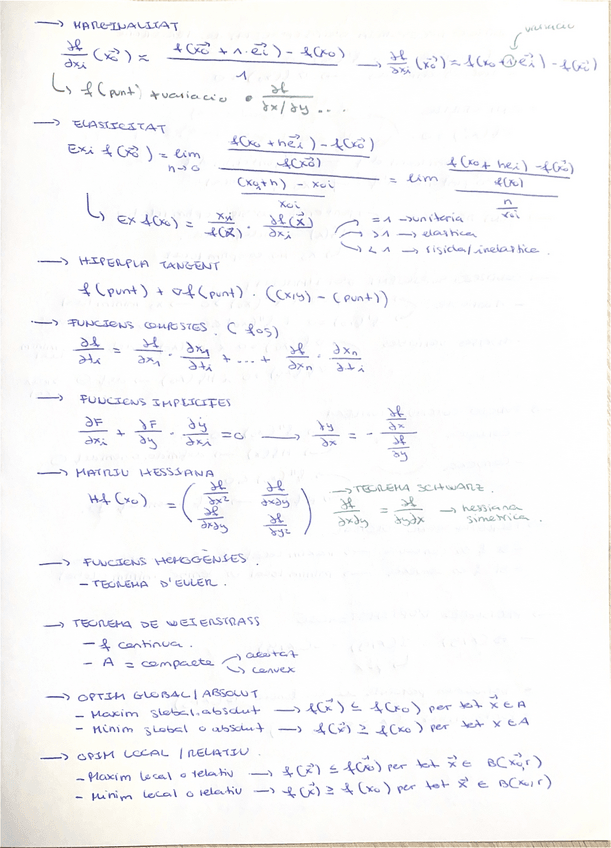 → MARGINALITAT
variació
∂f/∂xi (x₀⃗) ≈ (f(x₀⃗ + 1·e⃗i) - f(x₀))/1 → ∂f/∂xi (x₀⃗) = f(x₀ + 1 e⃗i) - f(x⃗)
↳ f(punt) + variació · ∂f/∂x/∂y ...
→ ELASTICITAT
Exi f(x₀⃗) = lim n→0 ((f(x₀ + he⃗i) - f(x₀⃗))/f(x₀⃗))/(((x₀i+h) - x₀i)/x₀i) = lim ((f(x₀+hei) - f(x₀⃗))/f(x₀))/(n/x₀i)
↳ Ex f(x₀) = xi/f(x⃗) · ∂f(x⃗)/∂xi
= 1 → unitaria
> 1 → elastica
< 1 → rigida/inelastica.
→ HIPERPLA TANGENT
f(punt) + ∇f(punt) · ((x,y) - (punt))
→ FUNCIONS COMPOSTES. (fog)
∂f/∂ti = ∂f/∂x1 · ∂x1/∂ti + ... + ∂f/∂xn · ∂xn/∂ti
→ FUNCIONS IMPLICITES
∂F/∂xi + ∂F/∂y · ∂y/∂xi = 0 → ∂y/∂x = - (∂f/∂x)/(∂f/∂y)
→ MATRIU HESSIANA
Hf(x₀) = ( ∂f/∂x² ∂f/∂x∂y
∂f/∂x∂y ∂f/∂y² )
→ TEOREMA SCHWARZ.
∂f/∂x∂y = ∂f/∂y∂x → hessiana simetrica.
→ FUNCIONS HOMOGÈNEES.
- TEOREMA D'EULER.
→ TEOREMA DE WEIERSTRASS
- f continua.
- A = compacte → acotat
→ convex
→ OPTIM GLOBAL/ABSOLUT
- Maxim global.absolut → f(x⃗) ≤ f(x₀) per tot x⃗ ∈ A
- Minim global o absolut → f(x⃗) ≥ f(x₀) per tot x ∈ A
→ OPIM LOCAL / RELATIU.
- Maxim local o relatiu → f(x⃗) ≤ f(x₀⃗) per tot x⃗ ∈ B(x₀⃗,r)
- Minim local o relatiu → f(x⃗) ≥ f(x₀) per tot x⃗ ∈ B(x₀,r)